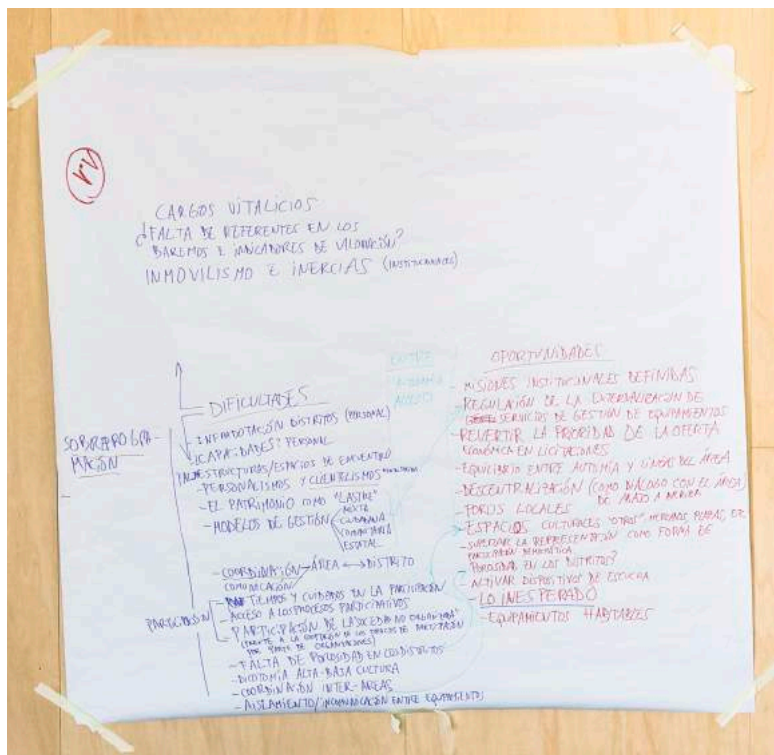 1.1
CARGOS VITALICIOS
¿FALTA DE REFERENTES EN LOS
BAREMOS E INDICADORES DE VALORACIÓN?
INMOVILISMO E INERCIAS (INSTITUCIONALES)
DIFICULTADES
SOBREPROGRA-
MACIÓN
- INFRADOTACIÓN DISTRITOS (PERSONAL)
- ¿CAPACIDADES? PERSONAL
INFRAESTRUCTURAS/ESPACIOS DE ENCUENTRO
- PERSONALISMOS Y CLIENTELISMOS
- EL PATRIMONIO COMO "LASTRE"
- MODELOS DE GESTIÓN
MIXTA
CIUDADANA
COMUNITARIA
ESTATAL
- COORDINACIÓN ÁREA ↔ DISTRITO
COMUNICACIÓN
PARTICIPACIÓN
- TIEMPOS Y CUIDADOS EN LA PARTICIPACIÓN
- ACCESO A LOS PROCESOS PARTICIPATIVOS
- PARTICIPACIÓN DE LA SOCIEDAD NO ORGANIZADA
(FRENTE A LA DE LOS DE PARTICIPACIÓN
POR PARTE DE ORGANIZACIONES)
- FALTA DE POROSIDAD EN LOS DISTRITOS
- DICOTOMÍA ALTA-BAJA CULTURA
- COORDINACIÓN INTER-ÁREAS
- AISLAMIENTO/INCOMUNICACIÓN ENTRE EQUIPAMIENTOS
OPORTUNIDADES
- MISIONES INSTITUCIONALES DEFINIDAS
- REGULACIÓN DE LA EXTERNALIZACIÓN DE
SERVICIOS DE GESTIÓN DE EQUIPAMIENTOS
- REVERTIR LA PRIORIDAD DE LA OFERTA
ECONÓMICA EN LICITACIONES
- EQUILIBRIO ENTRE AUTOMÍA Y LÍNEAS DEL ÁREA
- DESCENTRALIZACIÓN (COMO DIÁLOGO CON EL ÁREA)
DE ABAJO A ARRIBA
- FOROS LOCALES
- ESPACIOS CULTURALES "OTROS" MERCADOS, PLAZAS, ETC
- SUPERAR LA REPRESENTACIÓN COMO FORMA DE
PARTICIPACIÓN DEMOCRÁTICA
¿POROSIDAD EN LOS DISTRITOS?
- ACTIVAR DISPOSITIVOS DE ESCUCHA
- LO INESPERADO
- EQUIPAMIENTOS HABITABLES